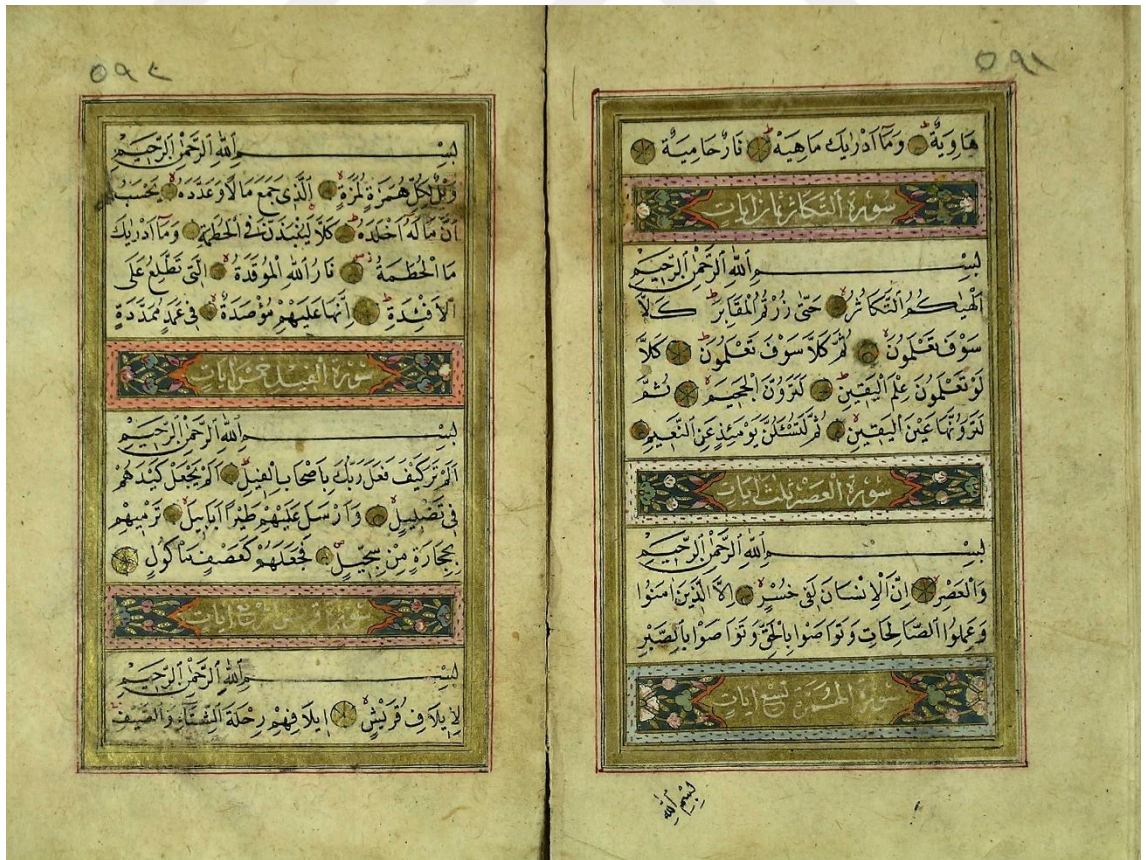 ٥٩١
هَاوِيَةٌ وَمَٓا اَدْرٰيكَ مَاهِيَهْ نَارٌ حَامِيَةٌ
سورة التكاثر ثمان ايات
بِسْمِ اللّٰهِ الرَّحْمٰنِ الرَّحِيمِ
اَلْهٰيكُمُ التَّكَاثُرُ حَتّٰى زُرْتُمُ الْمَقَابِرَ كَلَّا
سَوْفَ تَعْلَمُونَ ثُمَّ كَلَّا سَوْفَ تَعْلَمُونَ كَلَّا
لَوْ تَعْلَمُونَ عِلْمَ الْيَقِينِ لَتَرَوُنَّ الْجَحِيمَ ثُمَّ
لَتَرَوُنَّهَا عَيْنَ الْيَقِينِ ثُمَّ لَتُسْـَٔلُنَّ يَوْمَئِذٍ عَنِ النَّعِيمِ
سورة العصر ثلث ايات
بِسْمِ اللّٰهِ الرَّحْمٰنِ الرَّحِيمِ
وَالْعَصْرِ اِنَّ الْاِنْسَانَ لَفِى خُسْرٍ اِلَّا الَّذِينَ اٰمَنُوا
وَعَمِلُوا الصَّالِحَاتِ وَتَوَاصَوْا بِالْحَقِّ وَتَوَاصَوْا بِالصَّبْرِ
سورة الهمزة تسع ايات
بسم الله
٥٩٢
بِسْمِ اللّٰهِ الرَّحْمٰنِ الرَّحِيمِ
وَيْلٌ لِكُلِّ هُمَزَةٍ لُمَزَةٍ اَلَّذِى جَمَعَ مَالًا وَعَدَّدَهُ يَحْسَبُ
اَنَّ مَالَهُ اَخْلَدَهُ كَلَّا لَيُنْبَذَنَّ فِى الْحُطَمَةِ وَمَٓا اَدْرٰيكَ
مَا الْحُطَمَةُ نَارُ اللّٰهِ الْمُوقَدَةُ اَلَّتِى تَطَّلِعُ عَلَى
الْاَفْئِدَةِ اِنَّهَا عَلَيْهِمْ مُؤْصَدَةٌ فِى عَمَدٍ مُمَدَّدَةٍ
سورة الفيل خمس ايات
بِسْمِ اللّٰهِ الرَّحْمٰنِ الرَّحِيمِ
اَلَمْ تَرَ كَيْفَ فَعَلَ رَبُّكَ بِاَصْحَابِ الْفِيلِ اَلَمْ يَجْعَلْ كَيْدَهُمْ
فِى تَضْلِيلٍ وَاَرْسَلَ عَلَيْهِمْ طَيْرًا اَبَابِيلَ تَرْمِيهِمْ
بِحِجَارَةٍ مِنْ سِجِّيلٍ فَجَعَلَهُمْ كَعَصْفٍ مَأْكُولٍ
سورة قريش اربع ايات
بِسْمِ اللّٰهِ الرَّحْمٰنِ الرَّحِيمِ
لِاِيلَافِ قُرَيْشٍ اِيلَافِهِمْ رِحْلَةَ الشِّتَٓاءِ وَالصَّيْفِ